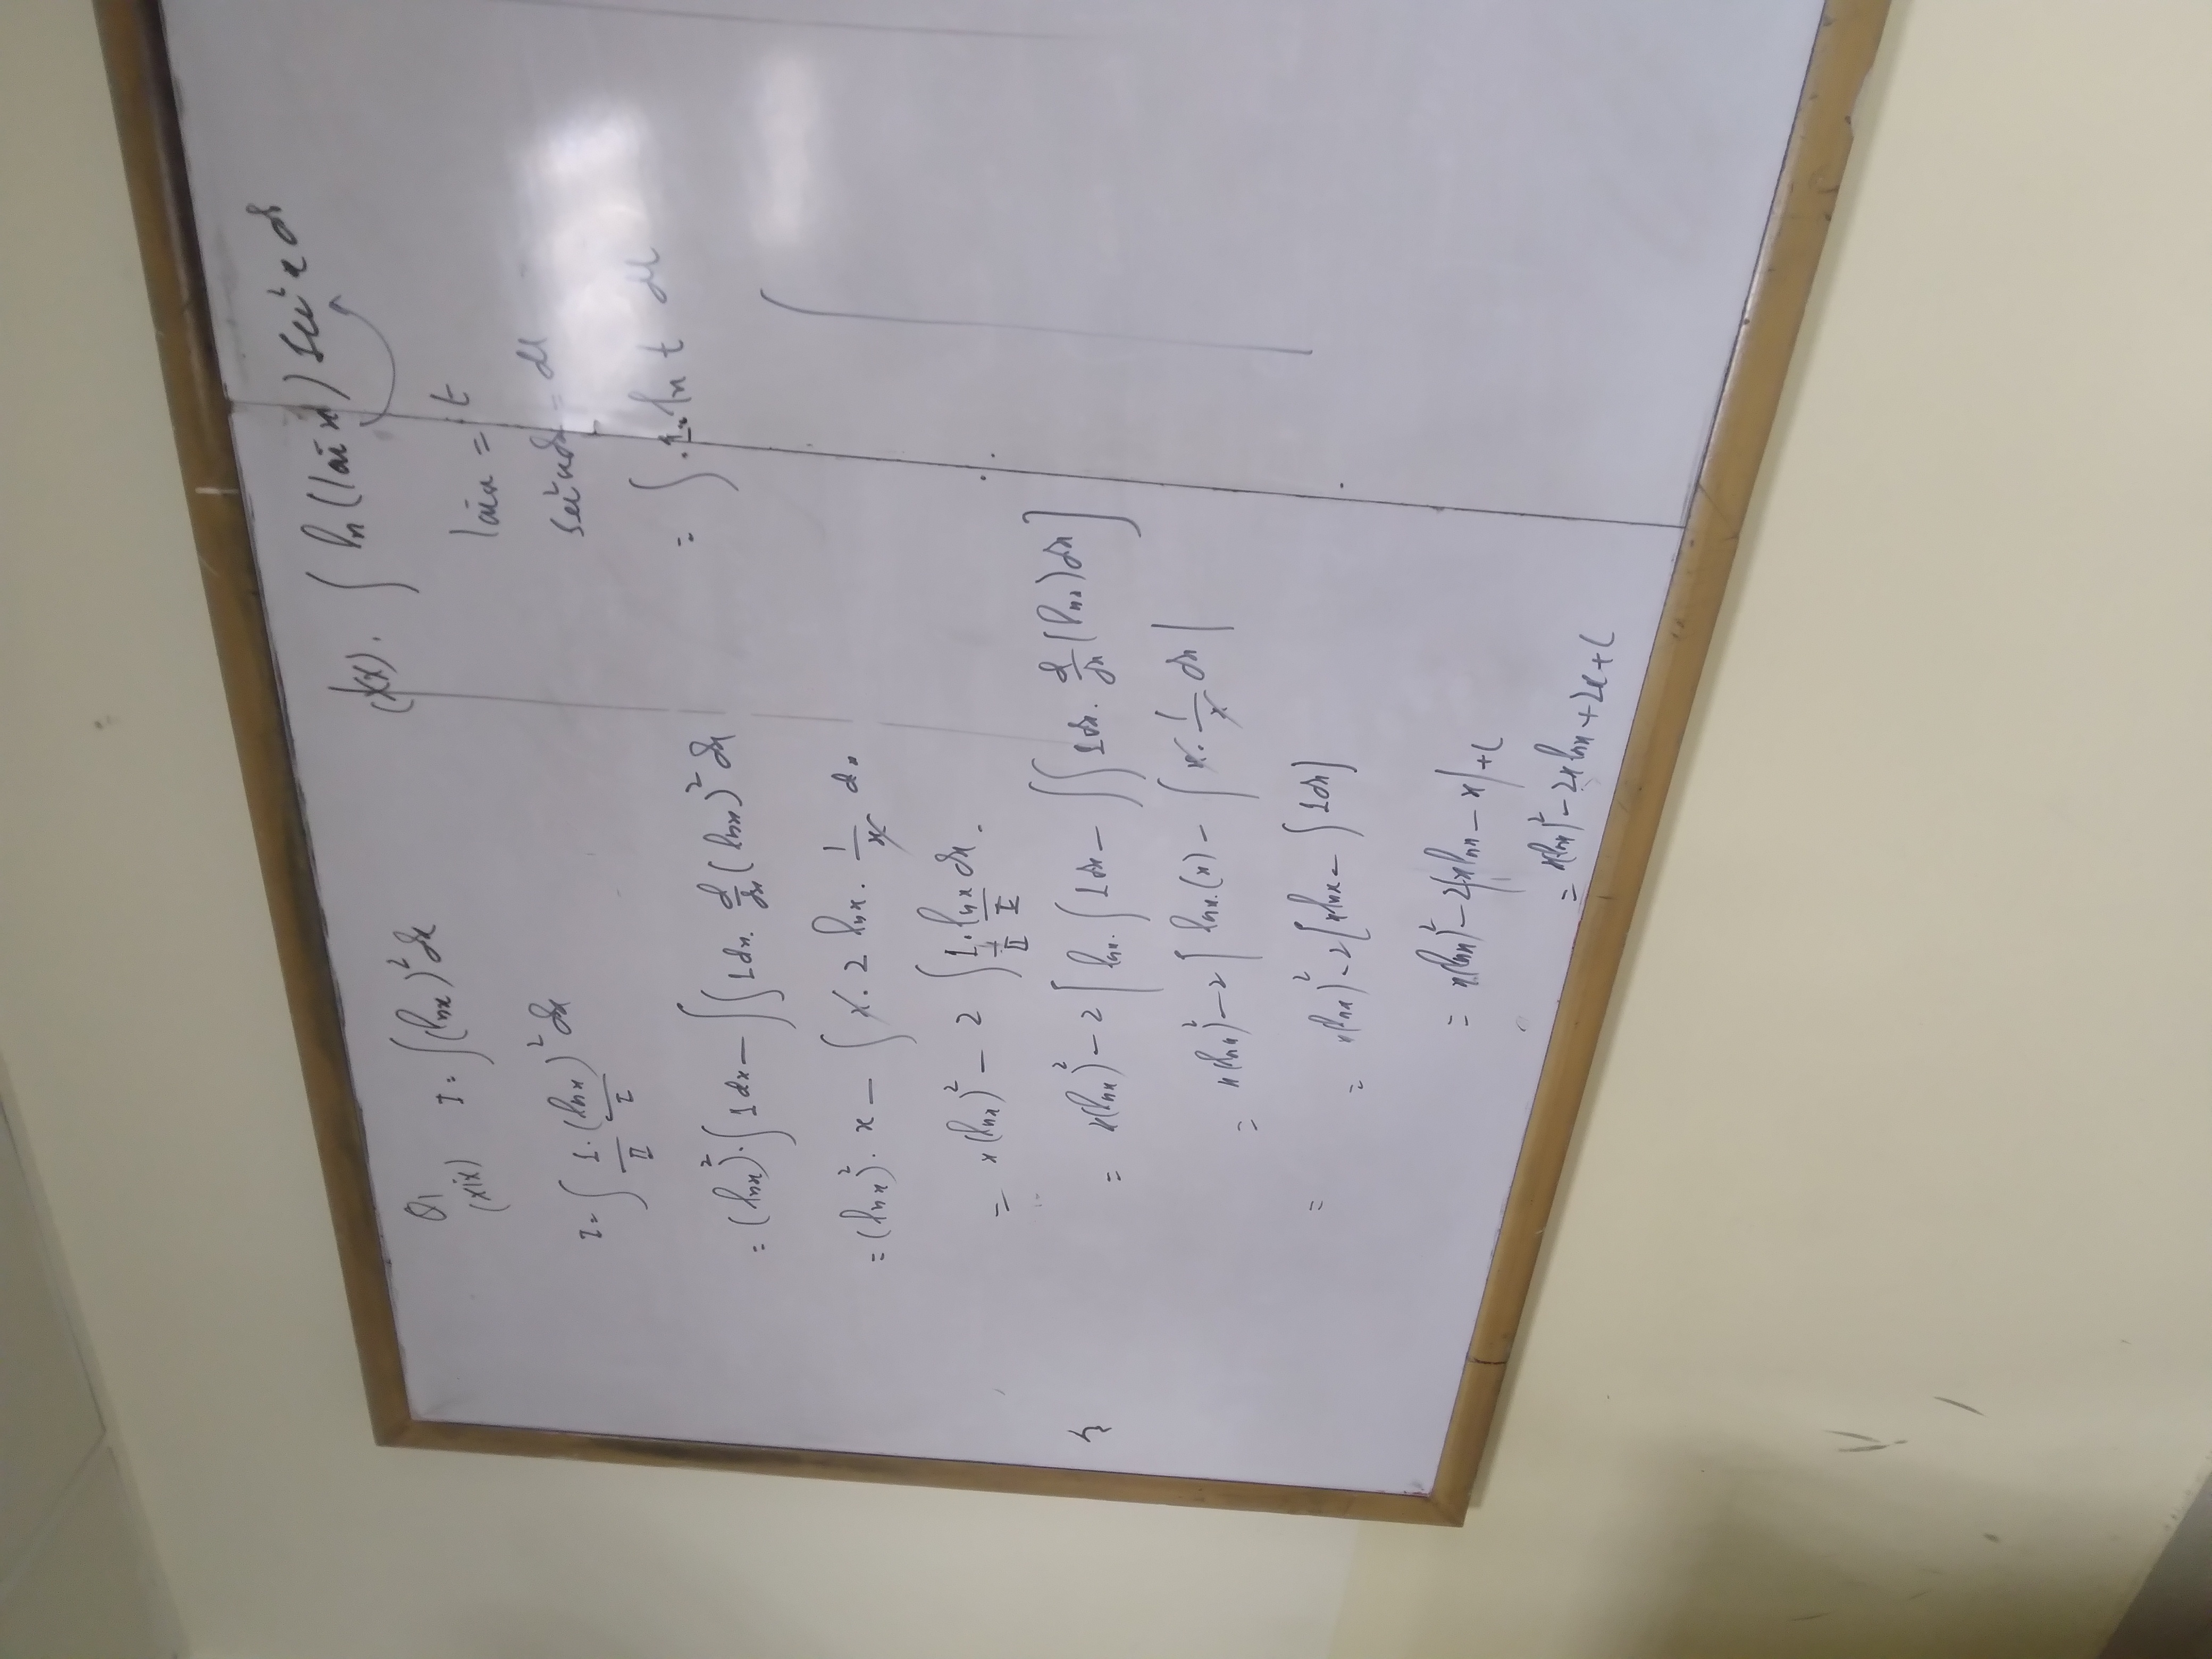 Q1
(xix) I = ∫(ln x)² dx
I = ∫ 1 · (ln x)² dx
II I
= (ln x)² · ∫ 1 dx − ∫∫ 1 dx · d/dx (ln x)² dx
= (ln x)² · x − ∫ x · 2 ln x · 1/x dx
= x(ln x)² − 2 ∫ 1 · ln x dx.
II I
= x(ln x)² − 2 [ln x · ∫ 1 dx − ∫∫ 1 dx · d/dx (ln x) dx]
= x(ln x)² − 2 [ln x · (x) − ∫ x · 1/x dx]
=
= x(ln x)² − 2 [x ln x − ∫ 1 dx]
= x(ln x)² − 2[x ln x − x] + c
= x(ln x)² − 2x ln x + 2x + c
(xx). ∫ ln(tan x) sec² x dx
tan x = t
sec² x dx = dt
= ∫ 1 · ln t dt
∫